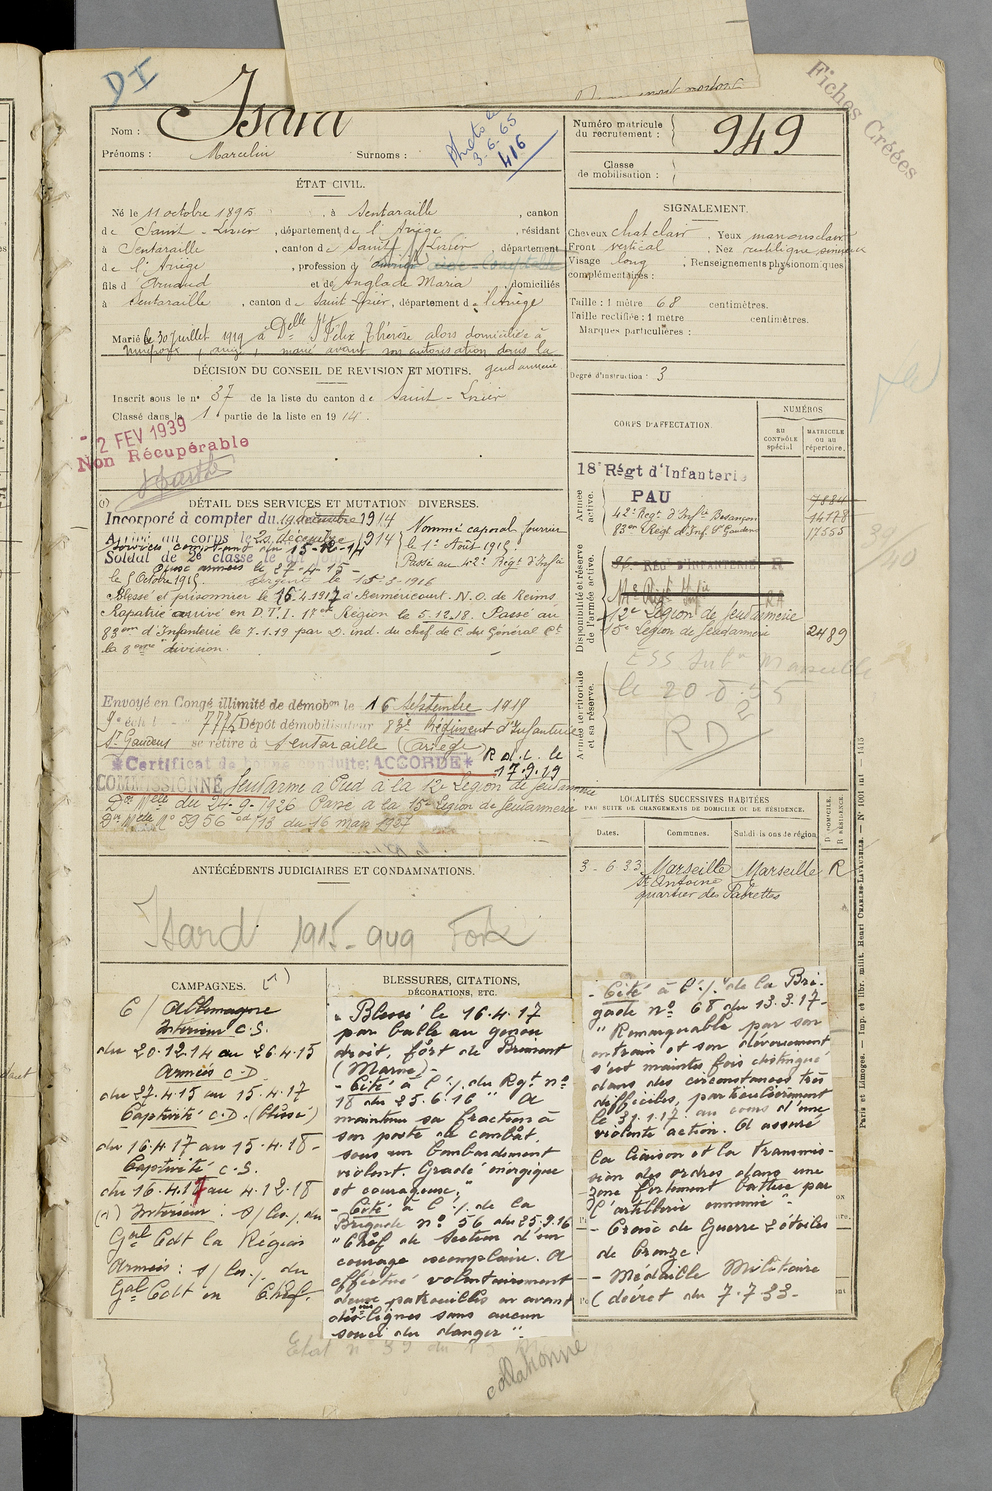 DI
Fiches Créées
Nom : Isard
Prénoms : Marcelin Surnoms :
Photo le
3.6.65
416
Numéro matricule
du recrutement : 949
Classe
de mobilisation :
ÉTAT CIVIL.
Né le 11 octobre 1895, à Sentaraille, canton
de Saint-Lizier, département de l'Ariège, résidant
à Sentaraille, canton de Saint Lizier, département
de l'Ariège, profession d
fils d'Arnaud et de Anglade Maria, domiciliés
à Sentaraille, canton de Saint Lizier, département de l'Ariège
Marié le 30 Juillet 1919 à Delle St Félix Thérèse alors domiciliée à
marié avant son autorisation depuis la
gendarmerie
SIGNALEMENT.
Cheveux chat clair. Yeux marrons clairs
Front vertical. Nez rectiligne, sinueux
Visage long. Renseignements physionomiques
complémentaires :
Taille : 1 mètre 68 centimètres.
Taille rectifiée : 1 mètre centimètres.
Marques particulières :
Degré d'instruction : 3
DÉCISION DU CONSEIL DE REVISION ET MOTIFS.
Inscrit sous le n° 37 de la liste du canton de Saint-Lizier
Classé dans la 1 partie de la liste en 1914.
- 2 FEV 1939
Non Récupérable
CORPS D'AFFECTATION.
NUMÉROS
AU CONTRÔLE spécial
MATRICULE OU AU répertoire.
Armée active.
18e Régt d'Infanterie
PAU
42e Regt d'Infie Besançon 14178
83em Regt d'Inf. St Gaudens 17555
Disponibilité et réserve de l'armée active.
RÉGt D'INFANTERIE R
12e Légion de Gendarmerie
15e Légion de Gendarmerie 2489
Armée territoriale et sa réserve.
le 20.8.55
RD
DÉTAIL DES SERVICES ET MUTATIONS DIVERSES.
Incorporé à compter du 19 décembre 1914
Arrivé au corps le 20 décembre 1914
services comptant du 15-12-14
Soldat de 2e classe le
aux armées le 27-4-15-
Nommé caporal fourrier
le 1er Août 1915.
Passé au 42e Regt d'Infie
le 8 Octobre 1915. Sergent le 15-3-1916
Blessé et prisonnier le 16.4.1917 à Berméricourt. N.O. de Reims
Rapatrié arrivé en D.T.I. 17e Région le 5.12.18. Passé au
83em d'Infanterie le 7.1.19 par D. ind. du chef de C. du Général Ct
la division.
Envoyé en Congé illimité de démobon le 16 Septembre 1919
9e éch Dépôt démobilisateur 83e Régiment d'Infanterie
St Gaudens se retire à Sentaraille (Ariège)
*Certificat de bonne conduite: ACCORDÉ*
R.d.l. le
17.9.19
COMMISSIONNÉ Gendarme à Pied à la 12e Légion de Gendarmerie
Don Melle du 24-9-1926 Passé à la 15e Légion de Gendarmerie
Don Melle N° 5956 /13 du 16 mars 1927
LOCALITÉS SUCCESSIVES HABITÉES
PAR SUITE DE CHANGEMENTS DE DOMICILE OU DE RÉSIDENCE.
Dates. Communes. Subdivisions de région. D. DOMICILE. R. RÉSIDENCE
3-6-33 Marseille Marseille R
St Antoine
quartier des Pabrettes
ANTÉCÉDENTS JUDICIAIRES ET CONDAMNATIONS.
Isard 1915-949 Foix
CAMPAGNES.
C/ Allemagne
Intérieur C.S.
du 20.12.14 au 26.4.15
Armées C.D
du 27.4.15 au 15.4.17
Captivité C.D. (blessé)
du 16.4.17 au 15.4.18-
Captivité C.S.
du 16.4.18 au 4.12.18
(1) Intérieur : s/les/. du
Gal Cdt la Région
Armées : s/les/. du
Gal Cdt en Chef.
BLESSURES, CITATIONS,
DÉCORATIONS, ETC.
- Blessé le 16.4.17
par balle au genou
droit, fort de Brimont
(Marne)-
- Cité à l'/. du Rgt n°
18 du 25.6.16 " A
maintenu sa fraction à
son poste de combat,
sous un bombardement
violent. Gradé énergique
et courageux,"
- Cité à l'/. de la
Brigade n° 56 du 25.9.16
"Chef de section d'un
courage exemplaire. A
effectué volontairement
deux patrouilles en avant
des lignes sans aucun
souci du danger".
- Cité à l'/. de la Bri-
gade n° 68 du 13.3.17-
" Remarquable par son
entrain et son dévouement
s'est maintes fois distingué
dans des circonstances très
difficiles, particulièrement
le 31.1.17 au cours d'une
violente action. A assuré
la liaison et la transmis-
sion des ordres dans une
zone fortement battue par
l'artillerie ennemie"-
- Croix de Guerre 2 étoiles
de bronze.
- Médaille Militaire
(décret du 7.7.33-
Etat n° 39 du
Paris et Limoges. — Imp. et libr. milit. Henri CHARLES-LAVAUZELLE.